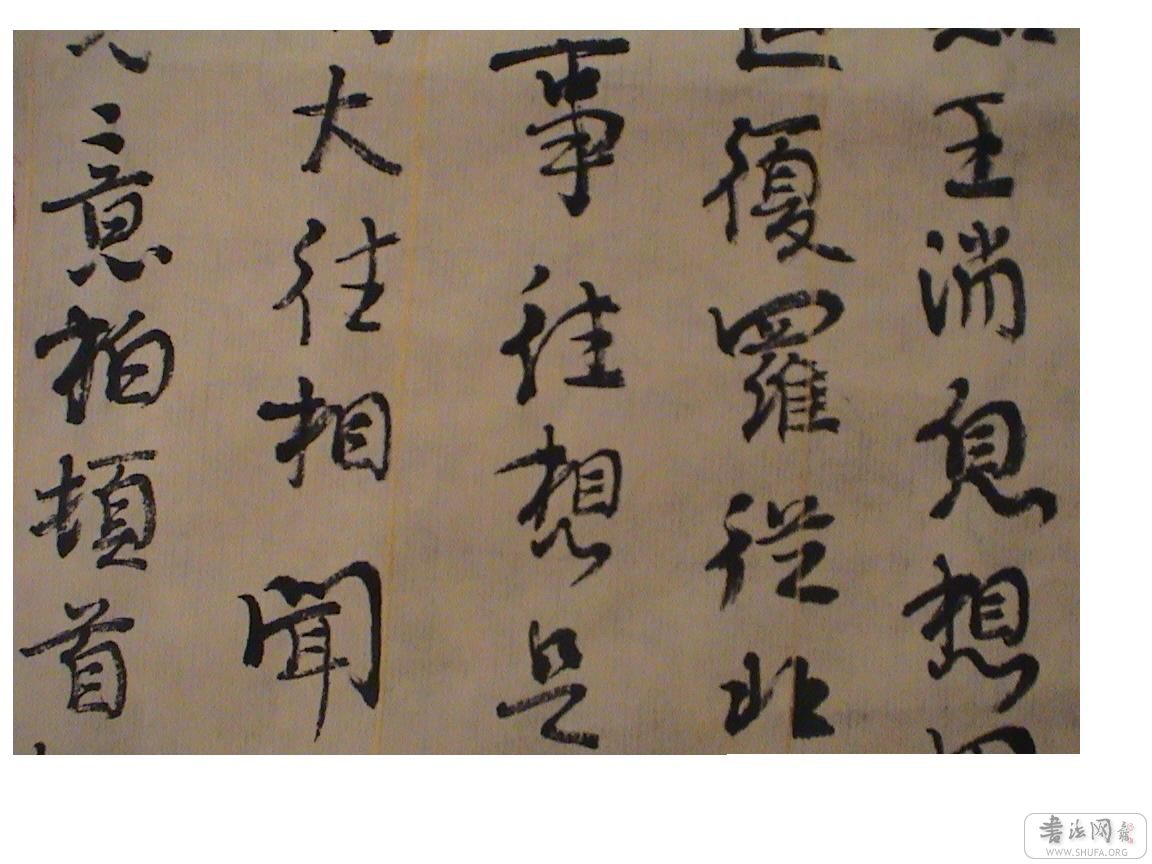 王消息想
復羅從北
一事佳想足
大往相聞
意拍頓首
書法网
WWW.SHUFA.ORG